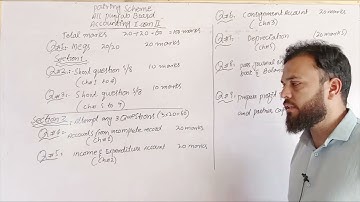 pairing Scheme
All punjab Board
Accounting I com II
Total marks 20+20+60 = 100 marks
Q#1: Mcqs 20/20 20 marks
Section 1
Q#2: Short question 5/8 10 marks
(ch# 1 to 4)
Q#3: Short question 5/8 10 marks
(ch# 5 to 9)
Section 2: Attempt any 3 Questions (3x20=60)
Q#4: accounts from incomplete record 20 marks
Q#5: income & Expenditure account 20 marks
Q#6: Consignment Account 20 marks
(ch#3)
Q#7: Depreciation 20 marks
Q#8: pass journal
post & Balance
Q#9: prepare profit
and